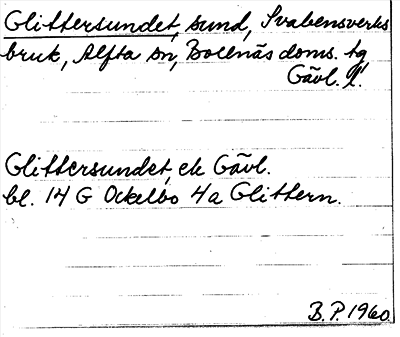 Glittersundet, sund, Svabensverks
bruk, Alfta sn, Bollnäs doms. tg
Gävl. l.
Glittersundet, ek Gävl.
bl. 14 G Ockelbo 4a Glittern.
B.P. 1960.